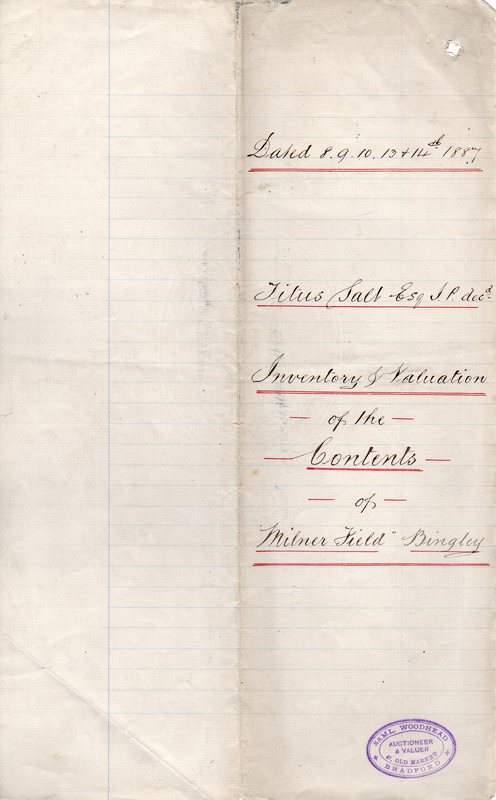 Dated 8. 9. 10. 13 & 14th 1887
Titus Salt Esq J.P. decd
Inventory & Valuation
of the
Contents
of
"Milner Field" Bingley
SAML. WOODHEAD
AUCTIONEER
& VALUER
OLD MARKET
BRADFORD